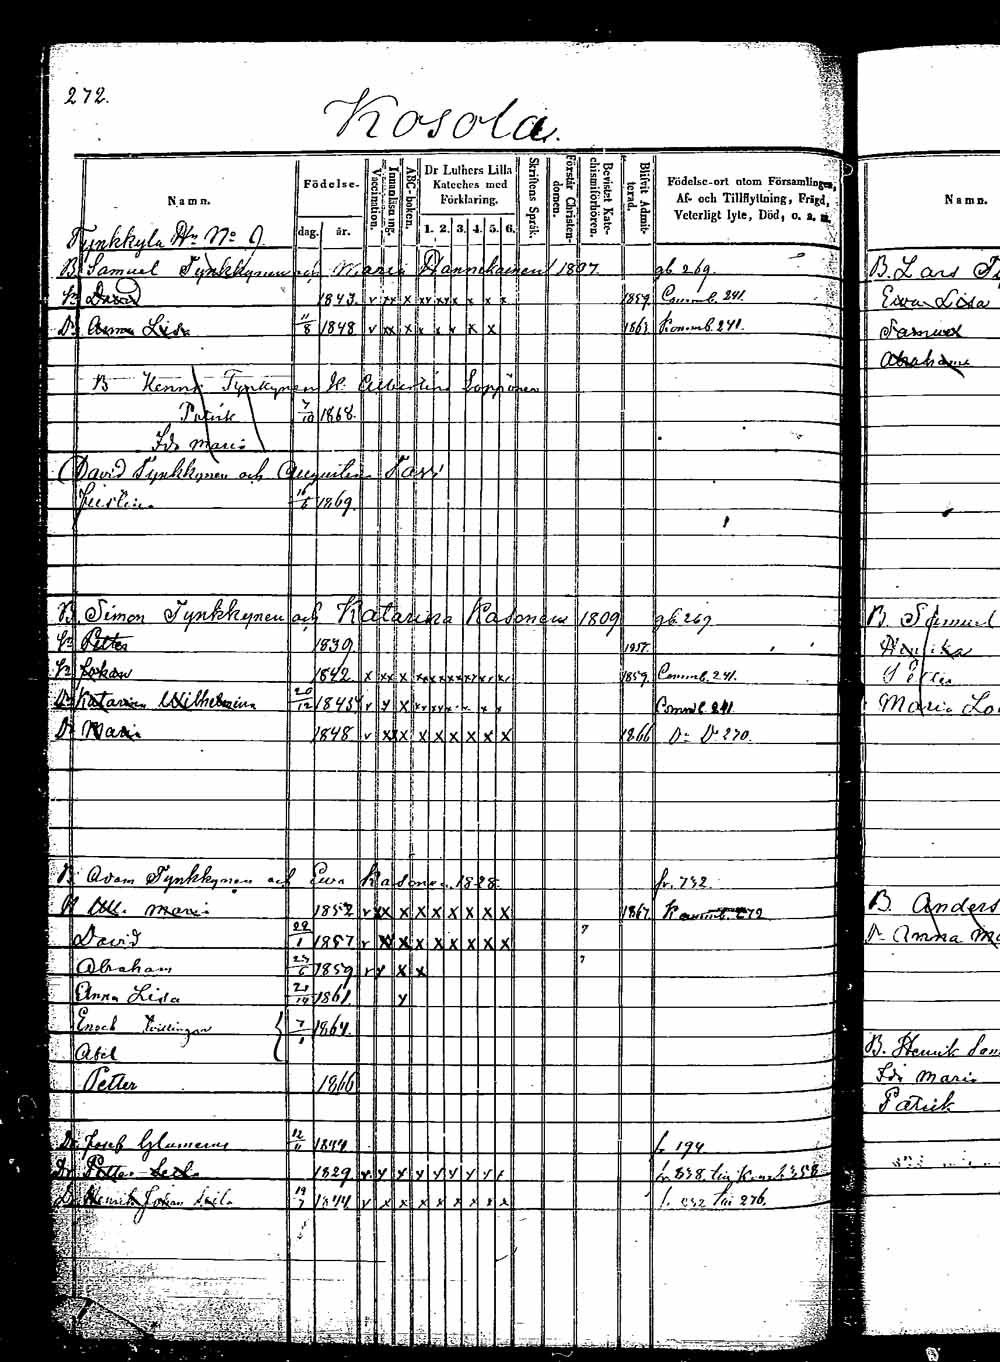 272.
Kosola.
Namn.
Födelse-
dag. år.
Vaccination.
Innanläsning.
ABC-boken.
Dr Luthers Lilla Kateches med Förklaring.
1. 2. 3. 4. 5. 6.
Skriftens Språk.
Förstår Christendomen.
Bevistet Katechismiförhören.
Blifvit Admitterad.
Födelse-ort utom Församlingen,
Af- och Tillflyttning, Frigd,
Veterligt lyte, Död, o. a. m.
Tynkkylä Hn No 9.
B. Samuel Tynkkynen och Maria Hannikainen 1807 gb. 269.
Sn David 1843. v xx x xx xx x x x x 1859. Commb. 241.
Dr Anna Lisa 11/8 1848 v xx x x x v x x 1863. Kommb. 241.
B Henrik Tynkynen H. Albertina Loppönen
Patrik 7/10 1868.
Ida Maria
David Tynkkynen och Augustina Tavi
Justina 16/6 1869.
B. Simon Tynkkynen och Katarina Kasonen 1809 gb. 269
Sn Petter 1839. 1857.
Sn Johan 1842 x xx x xx xx xx xx x x 1859. Commb. 241.
Dr Katarina Wilhelmina 20/12 1845 v y x x x x x x x Commb. 241.
Dr Maria 1848. v xx x x x x x x x 1866 Dn Do 270.
B. Adam Tynkkynen och Ewa Kasonen 1828. fr. 732.
Ull. Maria 1852 v xx x x x x x x x 1867. Kommb. 272
David 22/1 1857 v xx x x x x x x x ?
Abraham 23/6 1859 v y x x ?
Anna Lisa 1861. y
Enock Tvillingar 7/1 1864.
Abel
Petter 1866
Dr. Josef Glumerus 12/11 1844 fr 194
Dr Petter Seila 1829 y y y y y y y y
Dr Henrik Johan Seila 19/7 1844 v x x x x x x x x f. 232 till 276.
Namn.
B. Lars
Ewa Lisa
Samuel
Abraham
B. Samuel
Petter
Maria
B. Anders
Dr Anna
B. Henrik
Ida Maria
Patrik